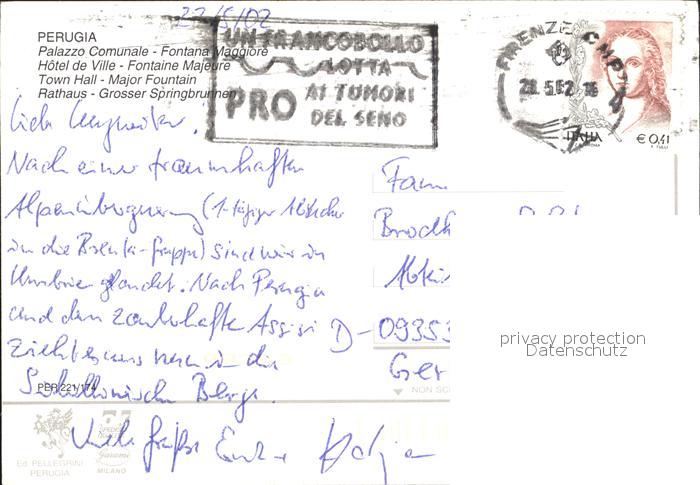 22/5/02
PERUGIA
Palazzo Comunale - Fontana Maggiore
Hôtel de Ville - Fontaine Majeure
Town Hall - Major Fountain
Rathaus - Grosser Springbrunnen
UN FRANCOBOLLO
LOTTA
PRO AI TUMORI
DEL SENO
FIRENZE CMP
ITALIA
€ 0,41
Liebe
Nach einer traumhaften
Alpenüberquerung (1-tägiger
in die Brenta-Gruppe) sind wir in
Umbrien gelandet. Nach Perugia
und dem zauberhaften Assisi
zieht es uns nun in die
Sibillinischen Berge.
Viele Grüße
Fam
D-09353
Ger
PER 221/174
NON SC
Ed. PELLEGRINI
PERUGIA
MILANO
privacy protection
Datenschutz